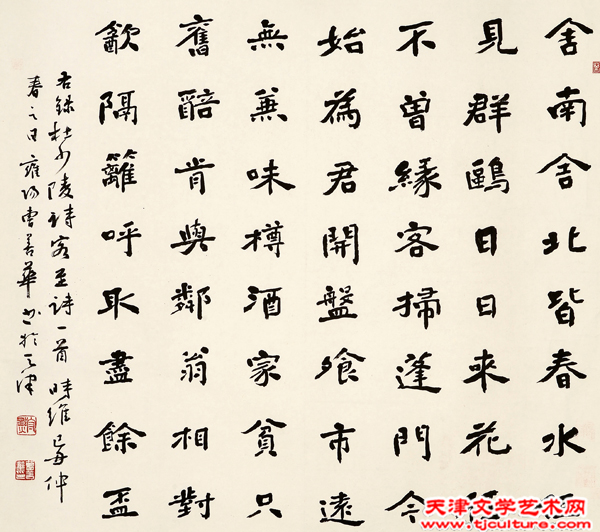 舍南舍北皆春水但
見群鷗日日來花徑
不曾緣客掃蓬門今
始為君開盤飧市遠
無兼味樽酒家貧只
舊醅肯與鄰翁相對
㱃隔籬呼取盡餘盃
右錄杜少陵詩客至詩一首 時維己丑仲
春之日雍陽曹善華書於天津
天津文学艺术网
www.tjculture.com